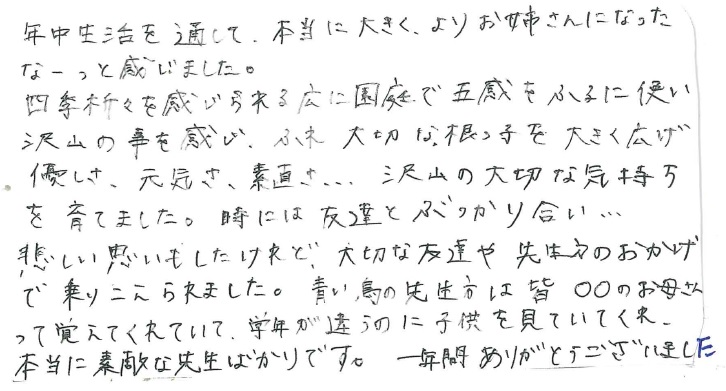 年中生活を通して、本当に大きく、よりお姉さんになった
なーっと感じました。
四季折々を感じられる広に園庭で五感をふるに使い
沢山の事を感じ、ふれ 大切な根っ子を大きく広げ
優しさ、元気さ、素直さ… 沢山の大切な気持ち
を育てました。時には友達とぶつかり合い…
悲しい思いもしたけれど、大切な友達や先生方のおかげ
で乗りこえられました。青い鳥の先生方は皆〇〇のお母さん
って覚えてくれていて、学年が違うのに子供を見ていてくれ、
本当に素敵な先生ばかりです。一年間ありがとうございました